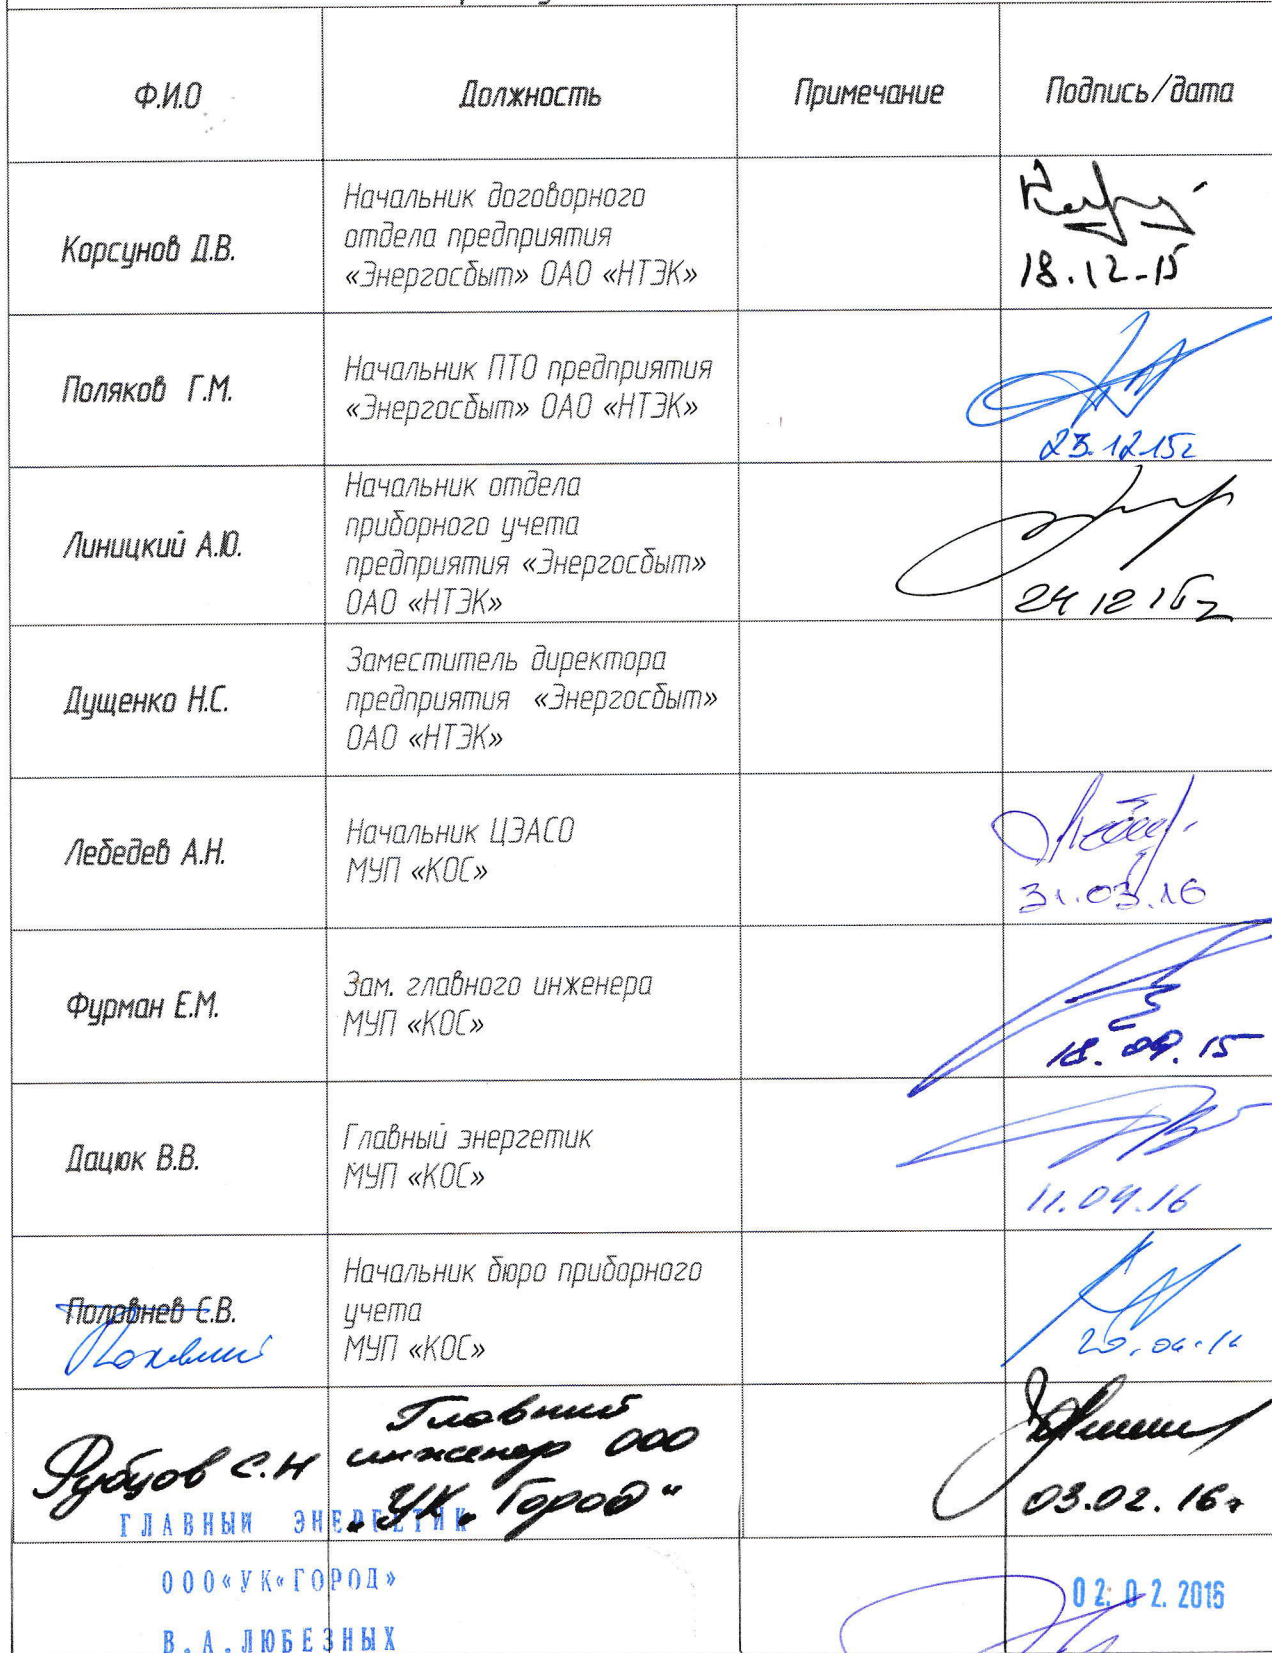 Ф.И.О
Должность
Примечание
Подпись/дата
Корсунов Д.В.
Начальник договорного
отдела предприятия
«Энергосбыт» ОАО «НТЭК»
18.12-15
Поляков Г.М.
Начальник ПТО предприятия
«Энергосбыт» ОАО «НТЭК»
23.12.15г
Линицкий А.Ю.
Начальник отдела
приборного учета
предприятия «Энергосбыт»
ОАО «НТЭК»
24 12 15г
Дущенко Н.С.
Заместитель директора
предприятия «Энергосбыт»
ОАО «НТЭК»
Лебедев А.Н.
Начальник ЦЭАСО
МУП «КОС»
31.03.16
Фурман Е.М.
Зам. главного инженера
МУП «КОС»
18.09.15
Дацюк В.В.
Главный энергетик
МУП «КОС»
11.04.16
Половнев С.В.
Начальник бюро приборного
учета
МУП «КОС»
20.04.16
Рубцов С.Н
Главный
инженер ООО
"УК "Город"
03.02.16г
ГЛАВНЫЙ ЭНЕРГЕТИК
ООО«УК«ГОРОД»
02.02.2016
В.А.ЛЮБЕЗНЫХ